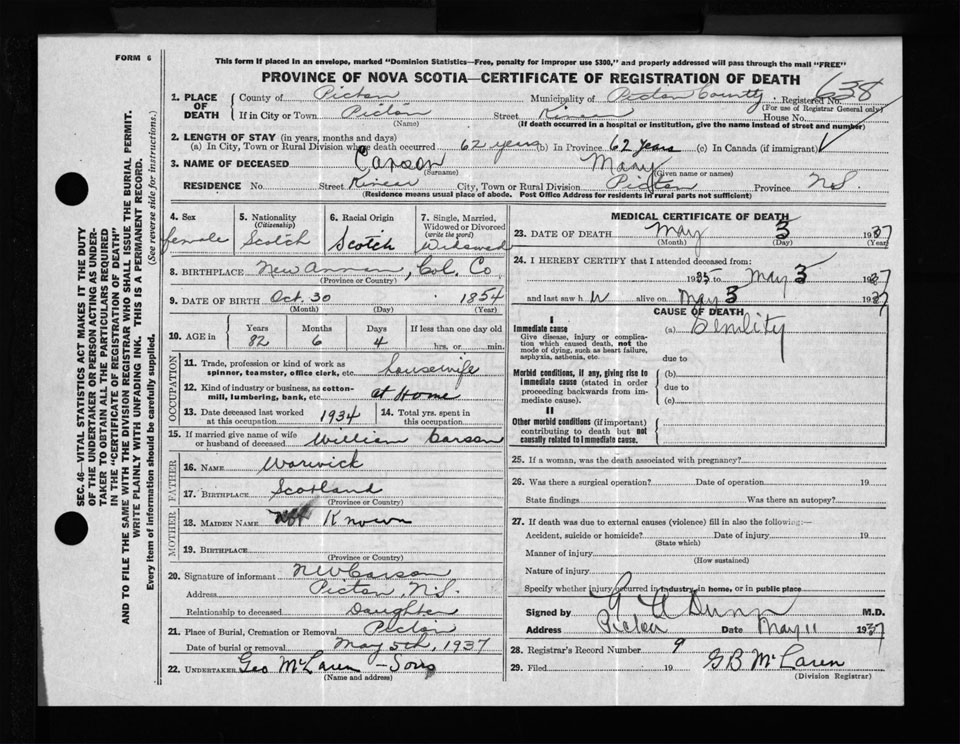 FORM 6
This form if placed in an envelope, marked "Dominion Statistics—Free, penalty for improper use $300," and properly addressed will pass through the mail "FREE"
PROVINCE OF NOVA SCOTIA—CERTIFICATE OF REGISTRATION OF DEATH
1. PLACE OF DEATH
County of Pictou Municipality of Pictou County Registered No. 638
(For use of Registrar General only)
If in City or Town Pictou Street House No.
(Name) (If death occurred in a hospital or institution, give the name instead of street and number)
2. LENGTH OF STAY (in years, months and days)
(a) In City, Town or Rural Division where death occurred 62 years (b) In Province 62 years (c) In Canada (if immigrant)
3. NAME OF DECEASED Carson Mary
(Surname) (Given name or names)
RESIDENCE No. Street City, Town or Rural Division Pictou Province N.S.
(Residence means usual place of abode. Post Office Address for residents in rural parts not sufficient)
4. Sex
female
5. Nationality
(Citizenship)
Scotch
6. Racial Origin
Scotch
7. Single, Married, Widowed or Divorced
(write the word)
Widowed
8. BIRTHPLACE New Annan, Col. Co.
(Province or Country)
9. DATE OF BIRTH Oct. 30 1854
(Month) (Day) (Year)
10. AGE in
Years Months Days If less than one day old
82 6 4 hrs. or min.
OCCUPATION
11. Trade, profession or kind of work as spinner, teamster, office clerk, etc. housewife
12. Kind of industry or business, as cotton-mill, lumbering, bank, etc. at Home
13. Date deceased last worked at this occupation 1934
14. Total yrs. spent in this occupation
15. If married give name of wife or husband of deceased William Carson
FATHER
16. NAME Warwick
17. BIRTHPLACE Scotland
(Province or Country)
MOTHER
18. MAIDEN NAME Not Known
19. BIRTHPLACE
(Province or Country)
20. Signature of informant Carson
Address Pictou, N.S.
Relationship to deceased Daughter
21. Place of Burial, Cremation or Removal Pictou
Date of burial or removal May 5th, 1937
22. UNDERTAKER Geo McLaren - Sons
(Name and address)
MEDICAL CERTIFICATE OF DEATH
23. DATE OF DEATH May 3 1937
(Month) (Day) (Year)
24. I HEREBY CERTIFY that I attended deceased from:
1935 to May 3 1937
and last saw h alive on May 3 1937
CAUSE OF DEATH
I
Immediate cause
Give disease, injury or complication which caused death, not the mode of dying, such as heart failure, asphyxia, asthenia, etc.
(a) Senility
due to
Morbid conditions, if any, giving rise to immediate cause (stated in order proceeding backwards from immediate cause).
(b)
due to
(c)
II
Other morbid conditions (if important) contributing to death but not causally related to immediate cause.
25. If a woman, was the death associated with pregnancy?
26. Was there a surgical operation? Date of operation 19
State findings Was there an autopsy?
27. If death was due to external causes (violence) fill in also the following:—
Accident, suicide or homicide? Date of injury 19
(State which)
Manner of injury
(How sustained)
Nature of injury
Specify whether injury occurred in industry, in home, or in public place
Signed by Dunn M.D.
Address Pictou Date May 11 1937
28. Registrar's Record Number 9
29. Filed 19 G B McLaren
(Division Registrar)
SEC. 46—VITAL STATISTICS ACT MAKES IT THE DUTY
OF THE UNDERTAKER OR PERSON ACTING AS UNDER-
TAKER TO OBTAIN ALL THE PARTICULARS REQUIRED
IN THE "CERTIFICATE OF REGISTRATION OF DEATH"
AND TO FILE THE SAME WITH THE DIVISION REGISTRAR WHO SHALL ISSUE THE BURIAL PERMIT.
WRITE PLAINLY WITH UNFADING INK. THIS IS A PERMANENT RECORD.
Every item of information should be carefully supplied. (See reverse side for instructions.)